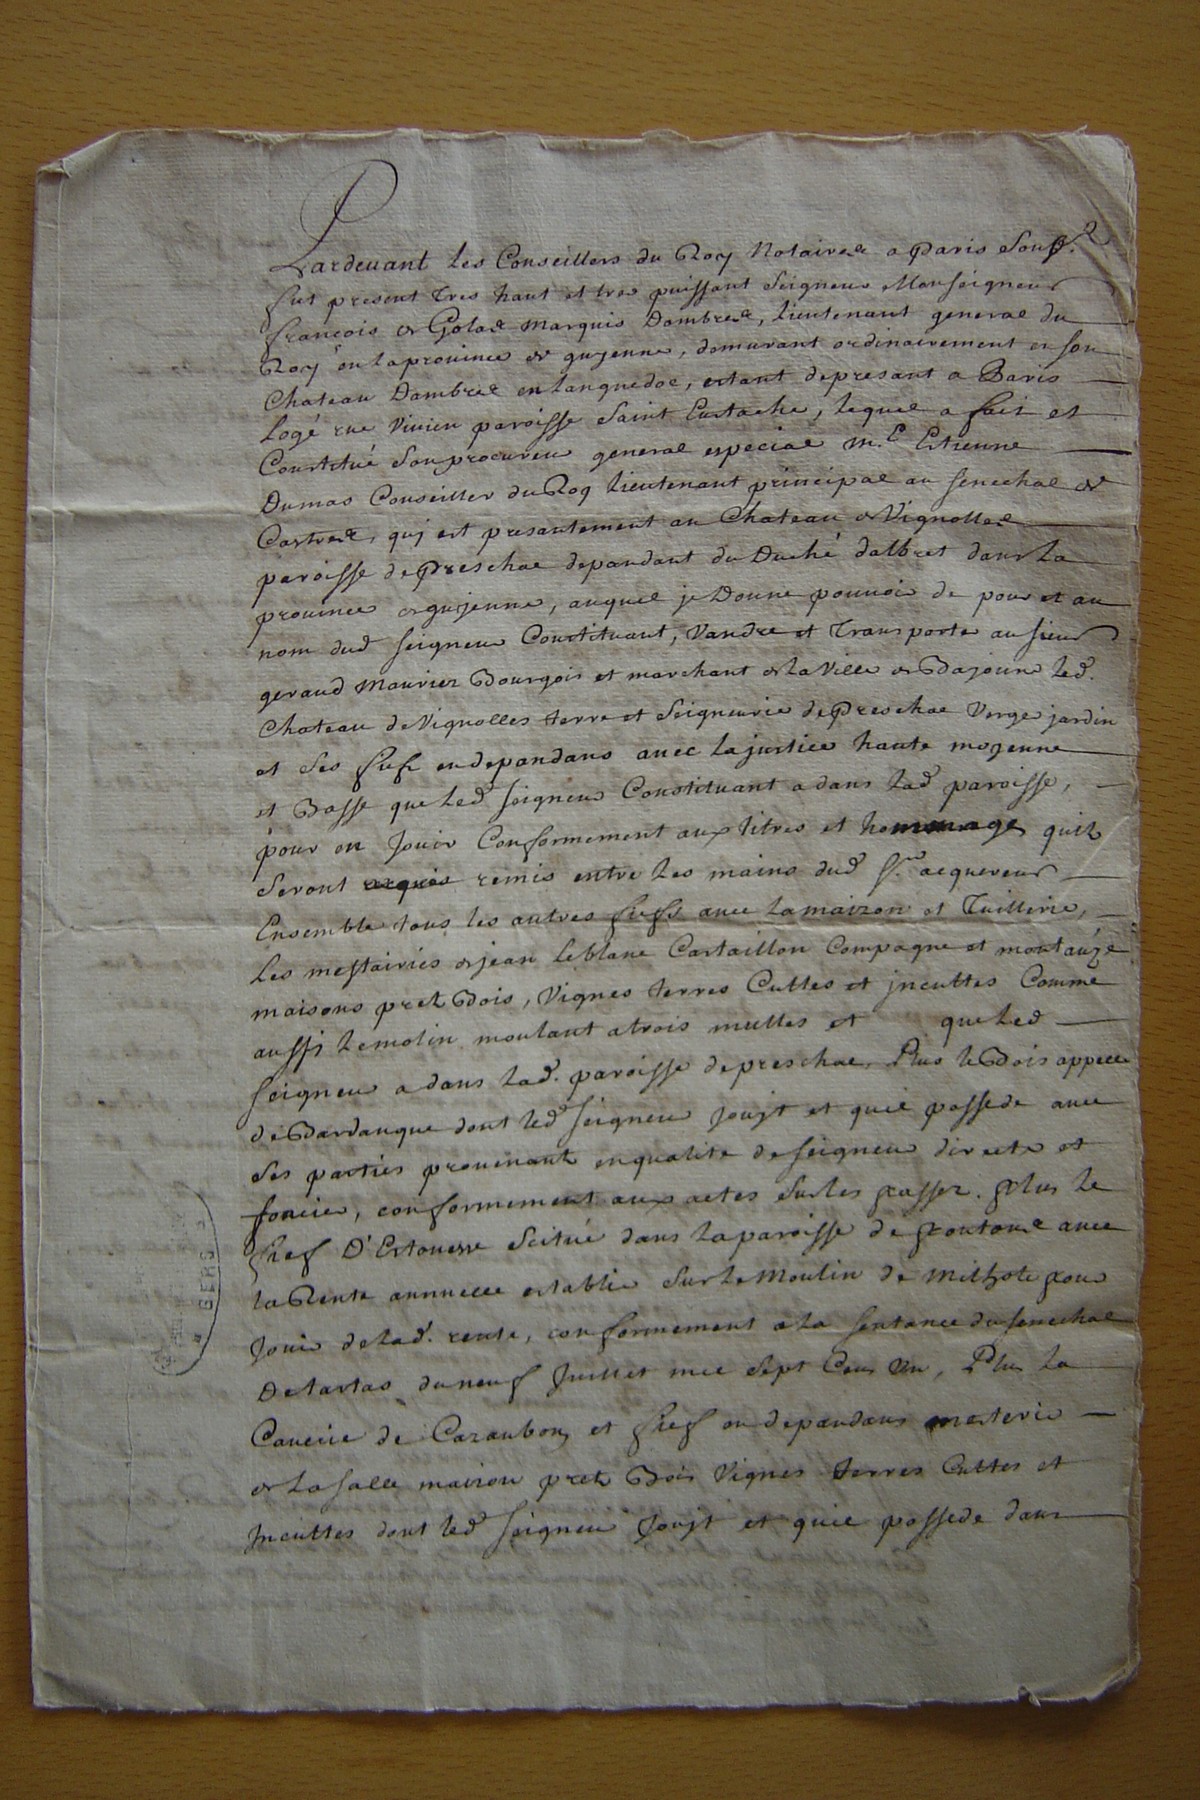 Pardevant les Conseillers du Roy Notaires a Paris Soub.
fut present Tres haut et tres puissant Seigneur Monseigneur
françois de Gelas Marquis Dambres, lieutenant general du
Roy en la prouince de guyenne, demurant ordinairement en son
Chateau Dambres en languedoc, estant de presant a Paris
Logé rue Vivien paroisse Saint Eustache, lequel a fait et
Constitué son procureur general especial M.e Estienne
Dumas Conseiller du Roy lieutenant principal au senechal de
Castres, quj est presantement au Chateau de Vignolles
paroisse de Preschac depandant du Duché dalbret dans la
prouince de gujenne, auquel je Donne pouuoir de pour et au
nom dud seigneur Constituant, Vandre et Transporter au sieur
geraud Mauriez Bourgois et marchant de la Ville de Bajonne led.
Chateau de Vignolles terre et Seigneurie de Preschac Verge jardin
et Ses fiefs en depandans auec la justice haute moyenne
et Basse que led seigneur Constituant a dans lad paroisse,
pour en Jouir Conformement aux titres et hommages quil
Seront remis entre les mains dud Sr. acquereur
Ensemble tous les autres fiefs auec la maizon et Tuillerie,
les mestairies de jean leblanc Castaillon Compagne et montauze
maisons pretz Bois, Vignes terres Cultes et jncultes Comme
aussi le molin moulant a trois mulles et que led
seigneur a dans lad. paroisse de preschac, Plus le Bois appelle
de Bardanque dont led seigneur joujt et quil possede auec
Ses parties prouenant en qualite de seigneur directe et
foncier, conformement aux actes Sur les passez. plus le
fief D'Estouesse Scitué dans la paroisse de pontonx auec
la Rente annuelle establie Sur le Moulin de Milhote pour
Jouir de lad. rente, conformement a la sentance du senechal
De tartas du neuf Juillet mil Sept Cens Un, Plus la
Cauerie de Cazaubon et fief en depandans mesterie
de la salle maison pretz Bois Vignes terres Cultes et
Jncultes dont led seigneur joujt et quil possede dans
GERS